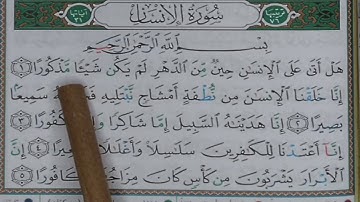 سُورَةُ الْإِنسَانِ
بِسْمِ اللَّهِ الرَّحْمَٰنِ الرَّحِيمِ
هَلْ أَتَىٰ عَلَى الْإِنسَانِ حِينٌ مِّنَ الدَّهْرِ لَمْ يَكُن شَيْئًا مَّذْكُورًا ١
إِنَّا خَلَقْنَا الْإِنسَانَ مِن نُّطْفَةٍ أَمْشَاجٍ نَّبْتَلِيهِ سَمِيعًا
بَصِيرًا ٢ إِنَّا هَدَيْنَاهُ السَّبِيلَ إِمَّا شَاكِرًا كَفُورًا ٣
إِنَّا أَعْتَدْنَا لِلْكَافِرِينَ سَلَاسِلَا وَأَغْلَالًا ٤ إِنَّ
الْأَبْرَارَ يَشْرَبُونَ مِن كَأْسٍ كَانَ مِزَاجُهَا كَافُورًا ٥